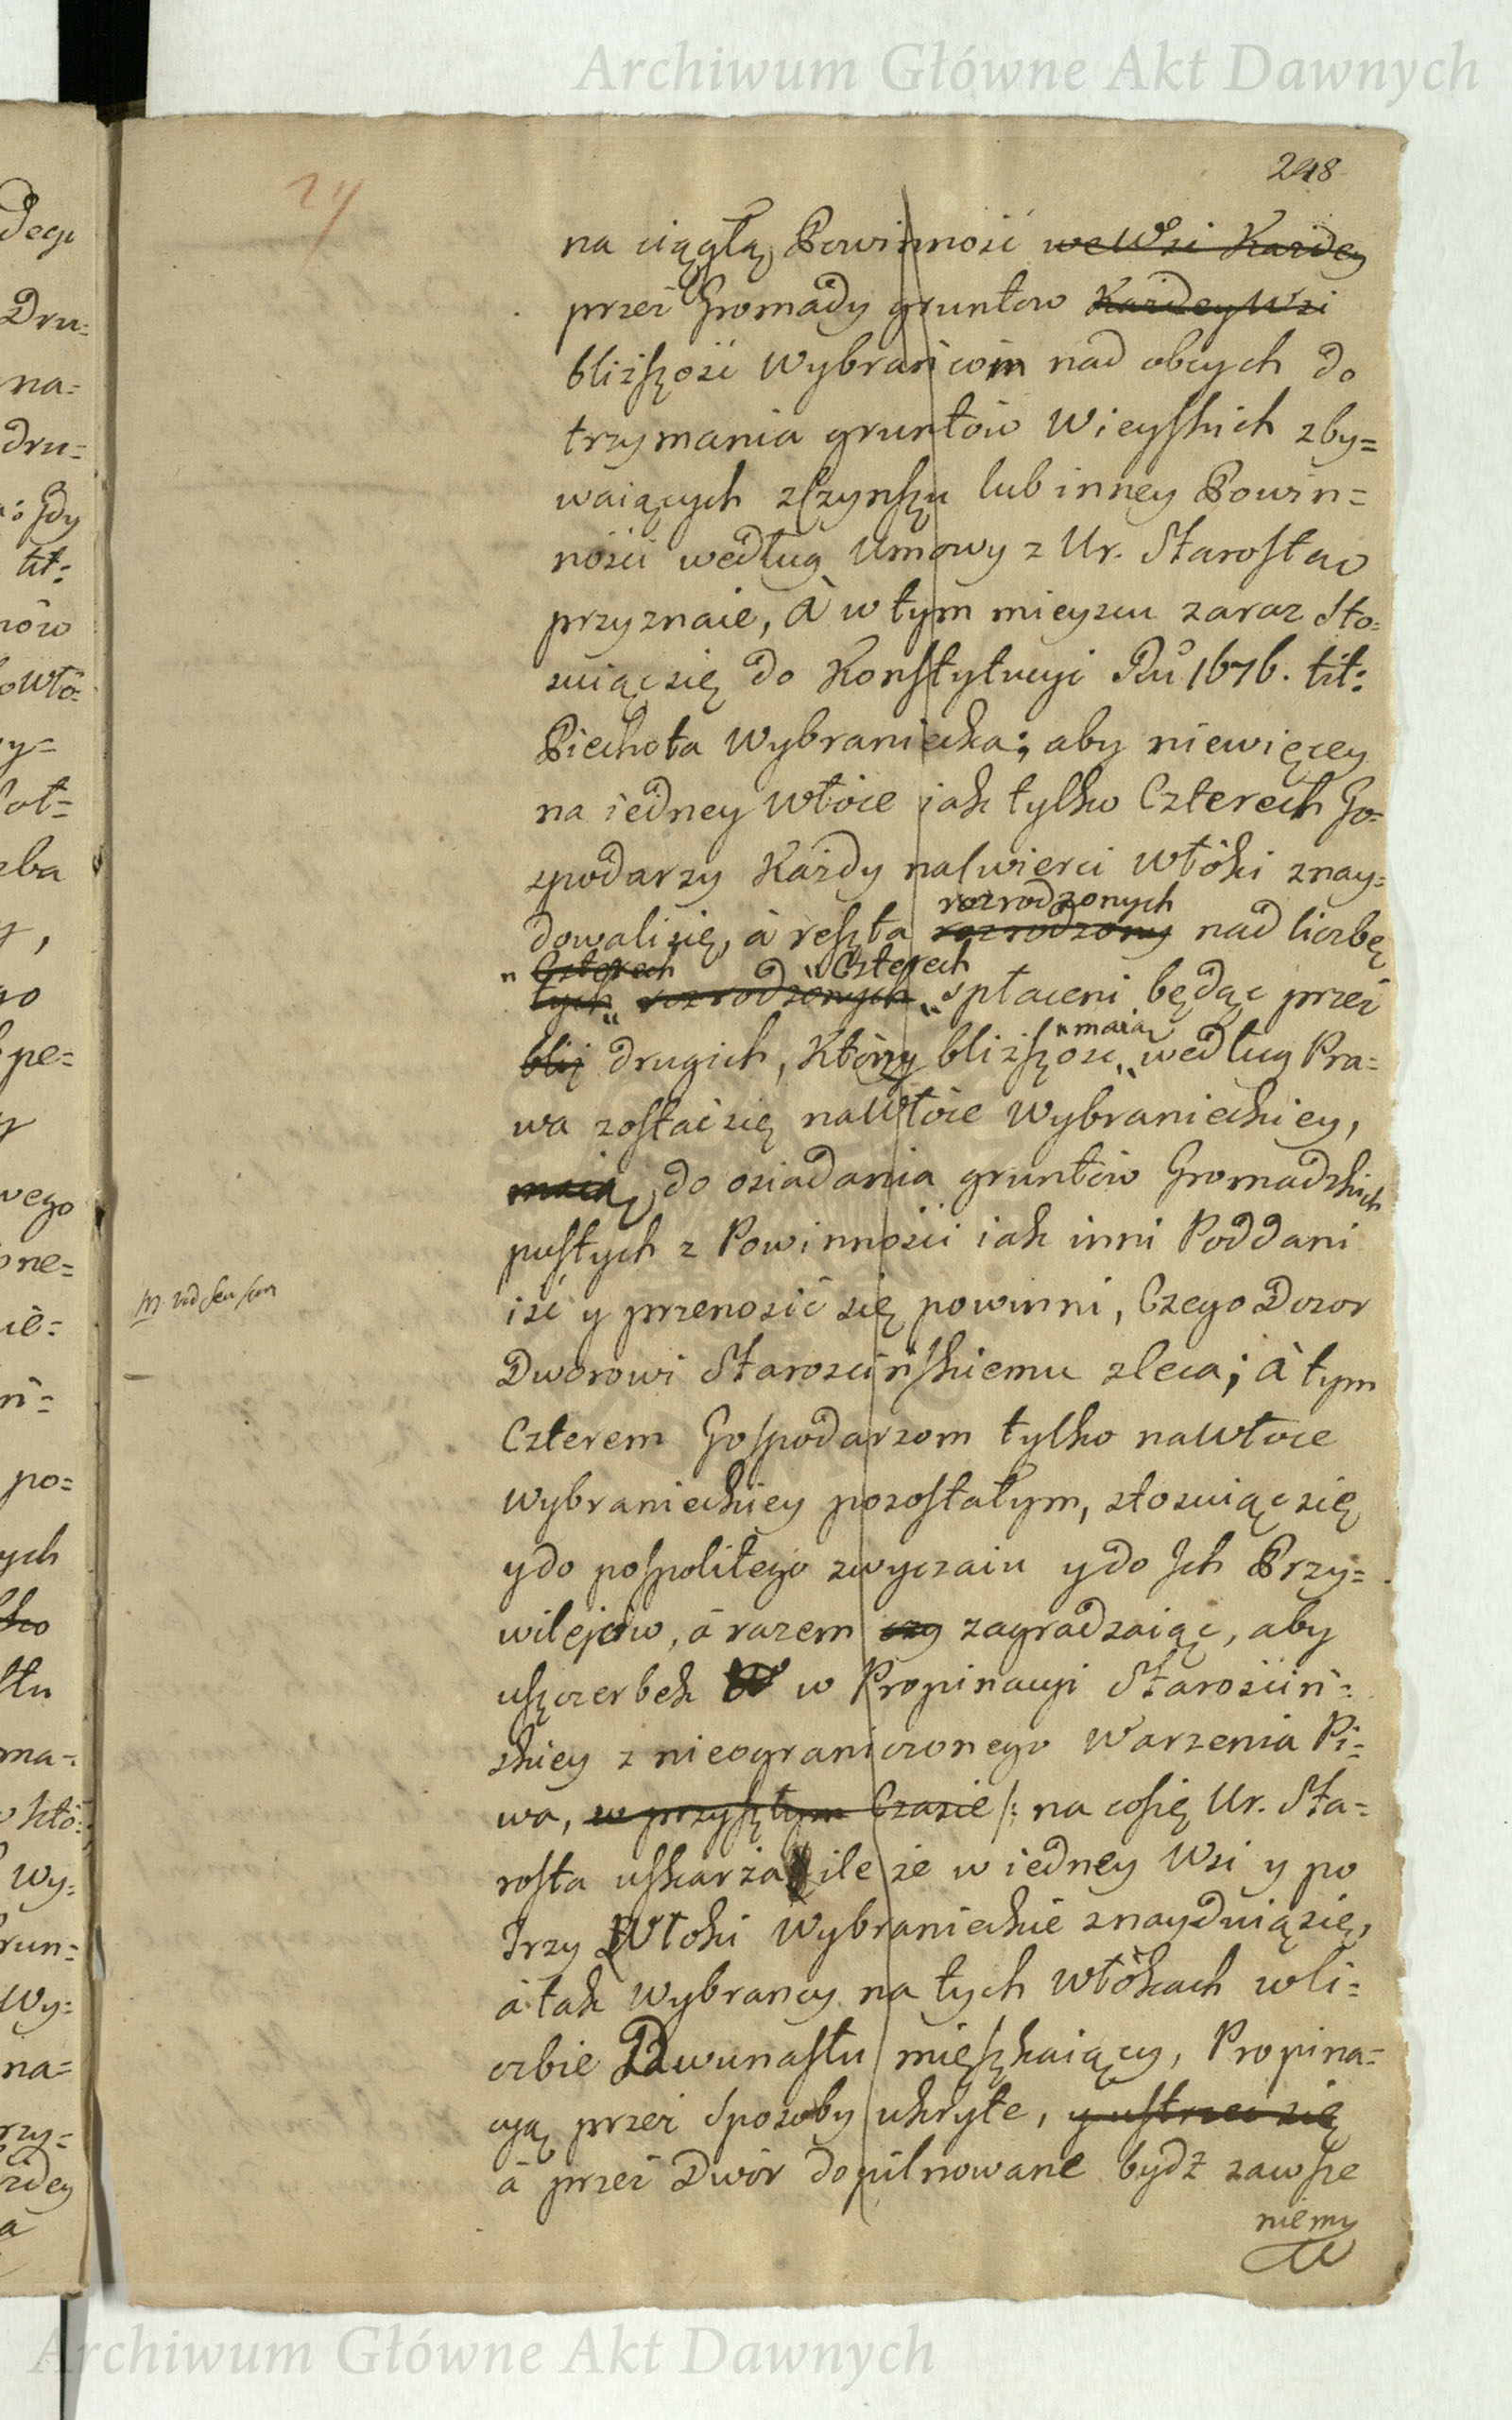 Archiwum Główne Akt Dawnych
248
24
na ciągłą Powinność we Wsi Każdey
przez Gromady gruntow Każdey Wsi
bliższość Wybrańcom nad obcych do
trzymania gruntów Wieyskich zby=
waiących z Czynszu lub inney Powin=
ności według Umowy z Ur. Starostąo
przyznaie, à w tym mieyscu zaraz sto=
suiąc się do Konstytucyi Ru 1676. tit:
Piechota Wybraniecka; aby niewięcey
na iedney włóce iak tylko Czterech Go=
spodarzy Każdy na ćwierci Włóki znay=
rozrodzonych
dowali się, à reszta rozrodzony nad liczbę
Czterech Czterech
tych rozrodzonych spłaceni będąc przez
maią
bliż drugich, Którzy bliższość według Pra=
wa zostać się na Włóce Wybranieckiey,
maią do osiadania gruntów Gromadzkich
pustych z Powinności iak inni Poddani
iść y przenosić się powinni, Czego Dozor
Dworowi Starościńskiemu zleca; à tym
Czterem Gospodarzom tylko na Włoce
Wybranieckiey pozostałym, stosuiąc się
y do pospolitego zwyczaiu y do Ich Przy=
wilejów, à razem czy zagradzaiąc, aby
uszczerbek W w Propinacyi Starościń=
skiey z nieograniczonego Warzenia Pi=
wa, w przyszłym Czasie /: na co się Ur. Sta=
rosta uskarża ile że w iedney Wsi y po
Trzy Włoki Wybranieckie znayduią się,
à tak Wybrancy na tych Włókach w li=
czbie Dwunastu mięszkaiący, Propina=
cyą przez Sposoby ukryte, y ustrzec się
à przez Dwór dopilnowane bydź zawsze
niemy
Archiwum Główne Akt Dawnych